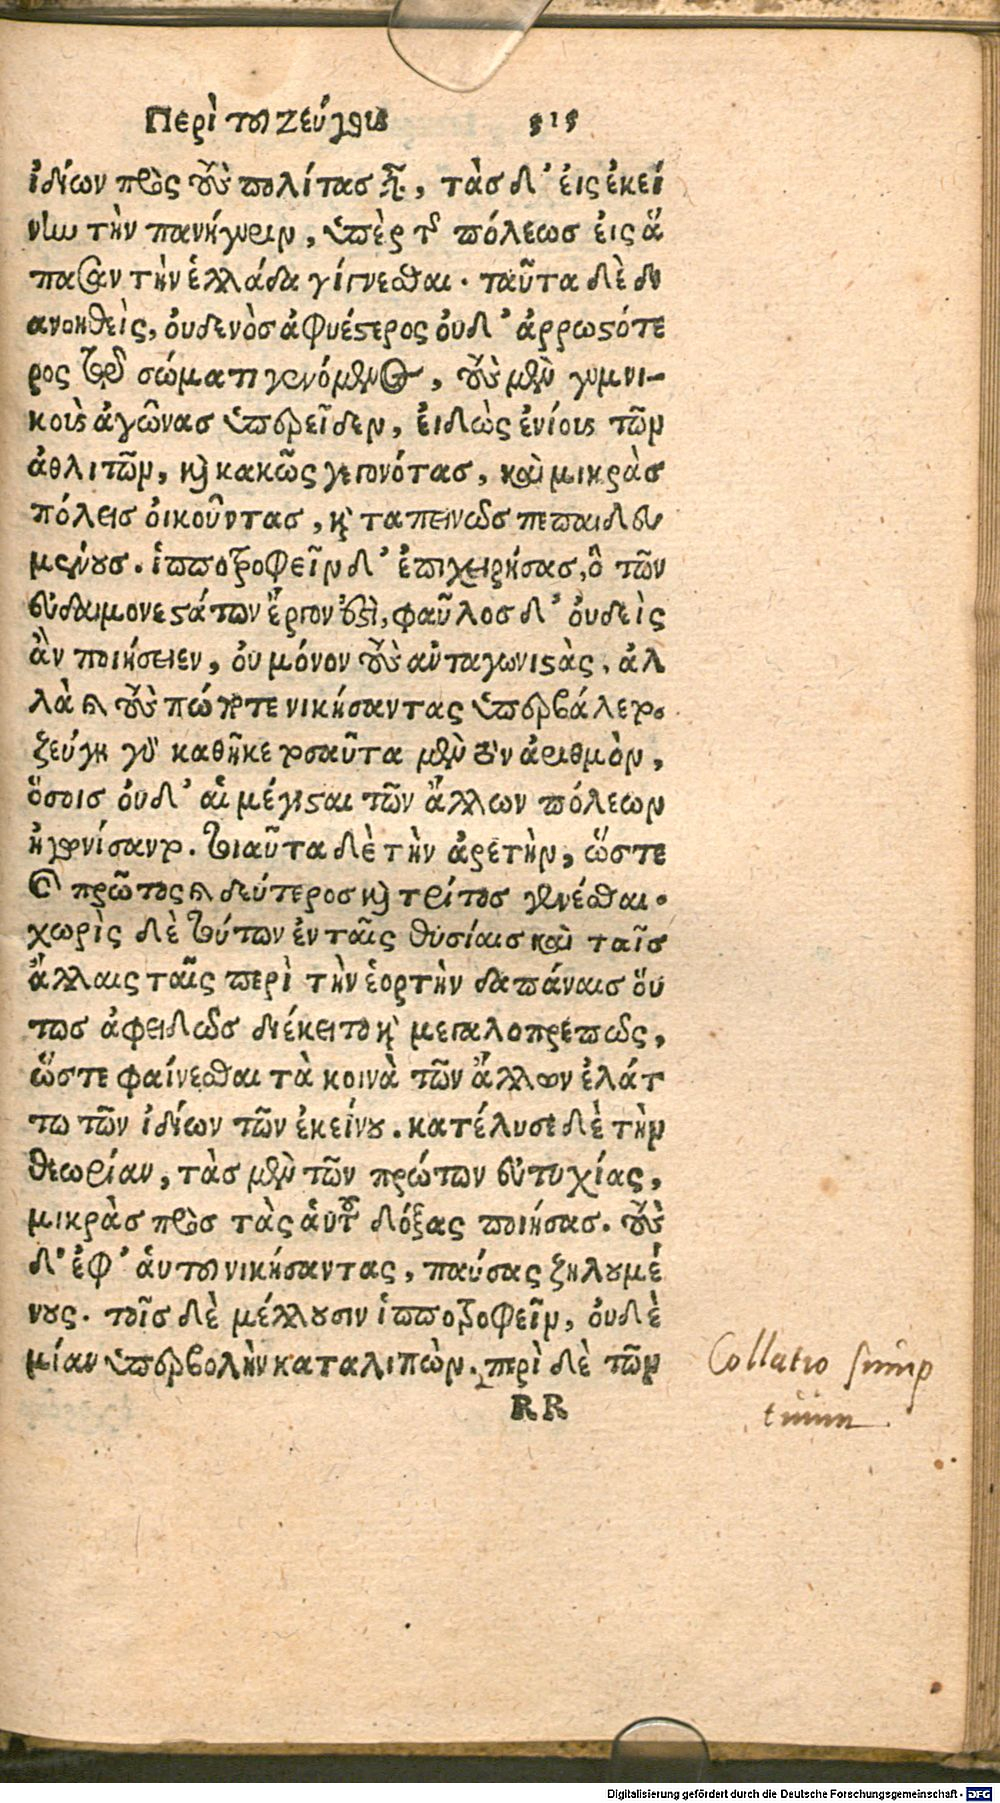 Περὶ τοῦ Ζεύγους 515
ἰδίων πρὸς τοὺς πολίτας ᾖ, τὰς δ' εἰς ἐκεί
νην τὴν πανήγυριν, ὑπὲρ τῆς πόλεως εἰς ἅ
πασαν τὴν ἑλλάδα γίγνεσθαι. ταῦτα δὲ δι
ανοηθεὶς, οὐδενὸς ἀφυέστερος οὐδ' ἀρρωστότε
ρος τῷ σώματι γενόμενος, τοὺς μὲν γυμνι-
κοὺς ἀγῶνας ὑπερεῖδεν, εἰδὼς ἐνίους τῶν
ἀθλιτῶν, καὶ κακῶς γεγονότας, καὶ μικρὰς
πόλεις οἰκοῦντας, καὶ ταπεινῶς πεπαιδευ
μένους. ἱπποτροφεῖν δ' ἐπιχειρήσας, ὃ τῶν
εὐδαιμονεστάτων ἔργον ἐστὶ, φαῦλος δ' οὐδεὶς
ἂν ποιήσειεν, οὐ μόνον τοὺς ἀνταγωνιστὰς, ἀλ
λὰ καὶ τοὺς πώποτε νικήσαντας ὑπερβάλετο.
ζεύγη γὰρ καθῆκε τοσαῦτα μὲν τὸν ἀριθμὸν,
ὅσοις οὐδ' αἱ μέγισται τῶν ἄλλων πόλεων
ἠγωνίσαντο. τοιαῦτα δὲ τὴν ἀρετὴν, ὥστε
καὶ πρῶτος καὶ δεύτερος καὶ τρίτος γενέσθαι.
χωρὶς δὲ τούτων ἐν ταῖς θυσίαις καὶ ταῖς
ἄλλαις ταῖς περὶ τὴν ἑορτὴν δαπάναις οὕ
τως ἀφειδῶς διέκειτο καὶ μεγαλοπρεπῶς,
ὥστε φαίνεσθαι τὰ κοινὰ τῶν ἄλλων ἐλάτ
τω τῶν ἰδίων τῶν ἐκείνου. κατέλυσε δὲ τὴν
θεωρίαν, τὰς μὲν τῶν πρώτων εὐτυχίας,
μικρὰς πρὸς τὰς αὑτοῦ δόξας ποιήσας. τοὺς
δ' ἐφ' αὑτοῦ νικήσαντας, παύσας ζηλουμέ
νους. τοῖς δὲ μέλλουσιν ἱπποτροφεῖν, οὐδε
μίαν ὑπερβολὴν καταλιπὼν. περὶ δὲ τῶν
RR
Collatio sump
tuum
Digitalisierung gefördert durch die Deutsche Forschungsgemeinschaft - DFG